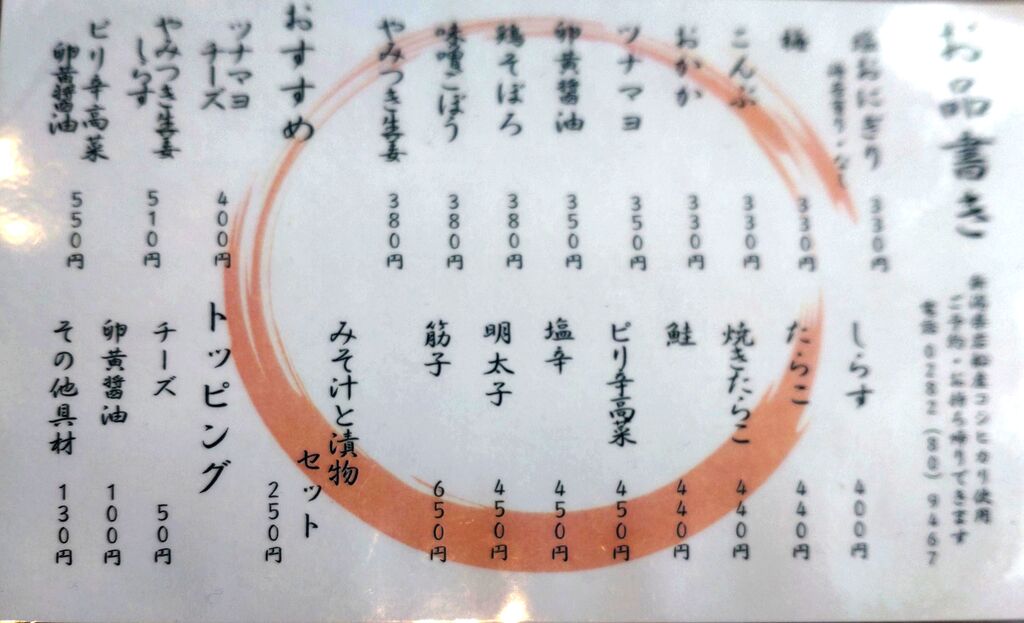 お品書き
新潟県岩船産コシヒカリ使用
ご予約・お持ち帰りできます
電話 0282（80）9467
塩おにぎり
330円
梅
330円
こんぶ
330円
おかか
330円
ツナマヨ
350円
卵黄醤油
350円
鶏そぼろ
380円
味噌ごぼう
380円
やみつき生姜
380円
しらす
400円
たらこ
440円
焼きたらこ
440円
鮭
440円
ピリ辛高菜
450円
塩辛
450円
明太子
450円
筋子
650円
みそ汁と漬物
セット
250円
おすすめ
ツナマヨ
チーズ
400円
やみつき生姜
しらす
510円
ピリ辛高菜
卵黄醤油
550円
トッピング
チーズ
50円
卵黄醤油
100円
その他具材
130円